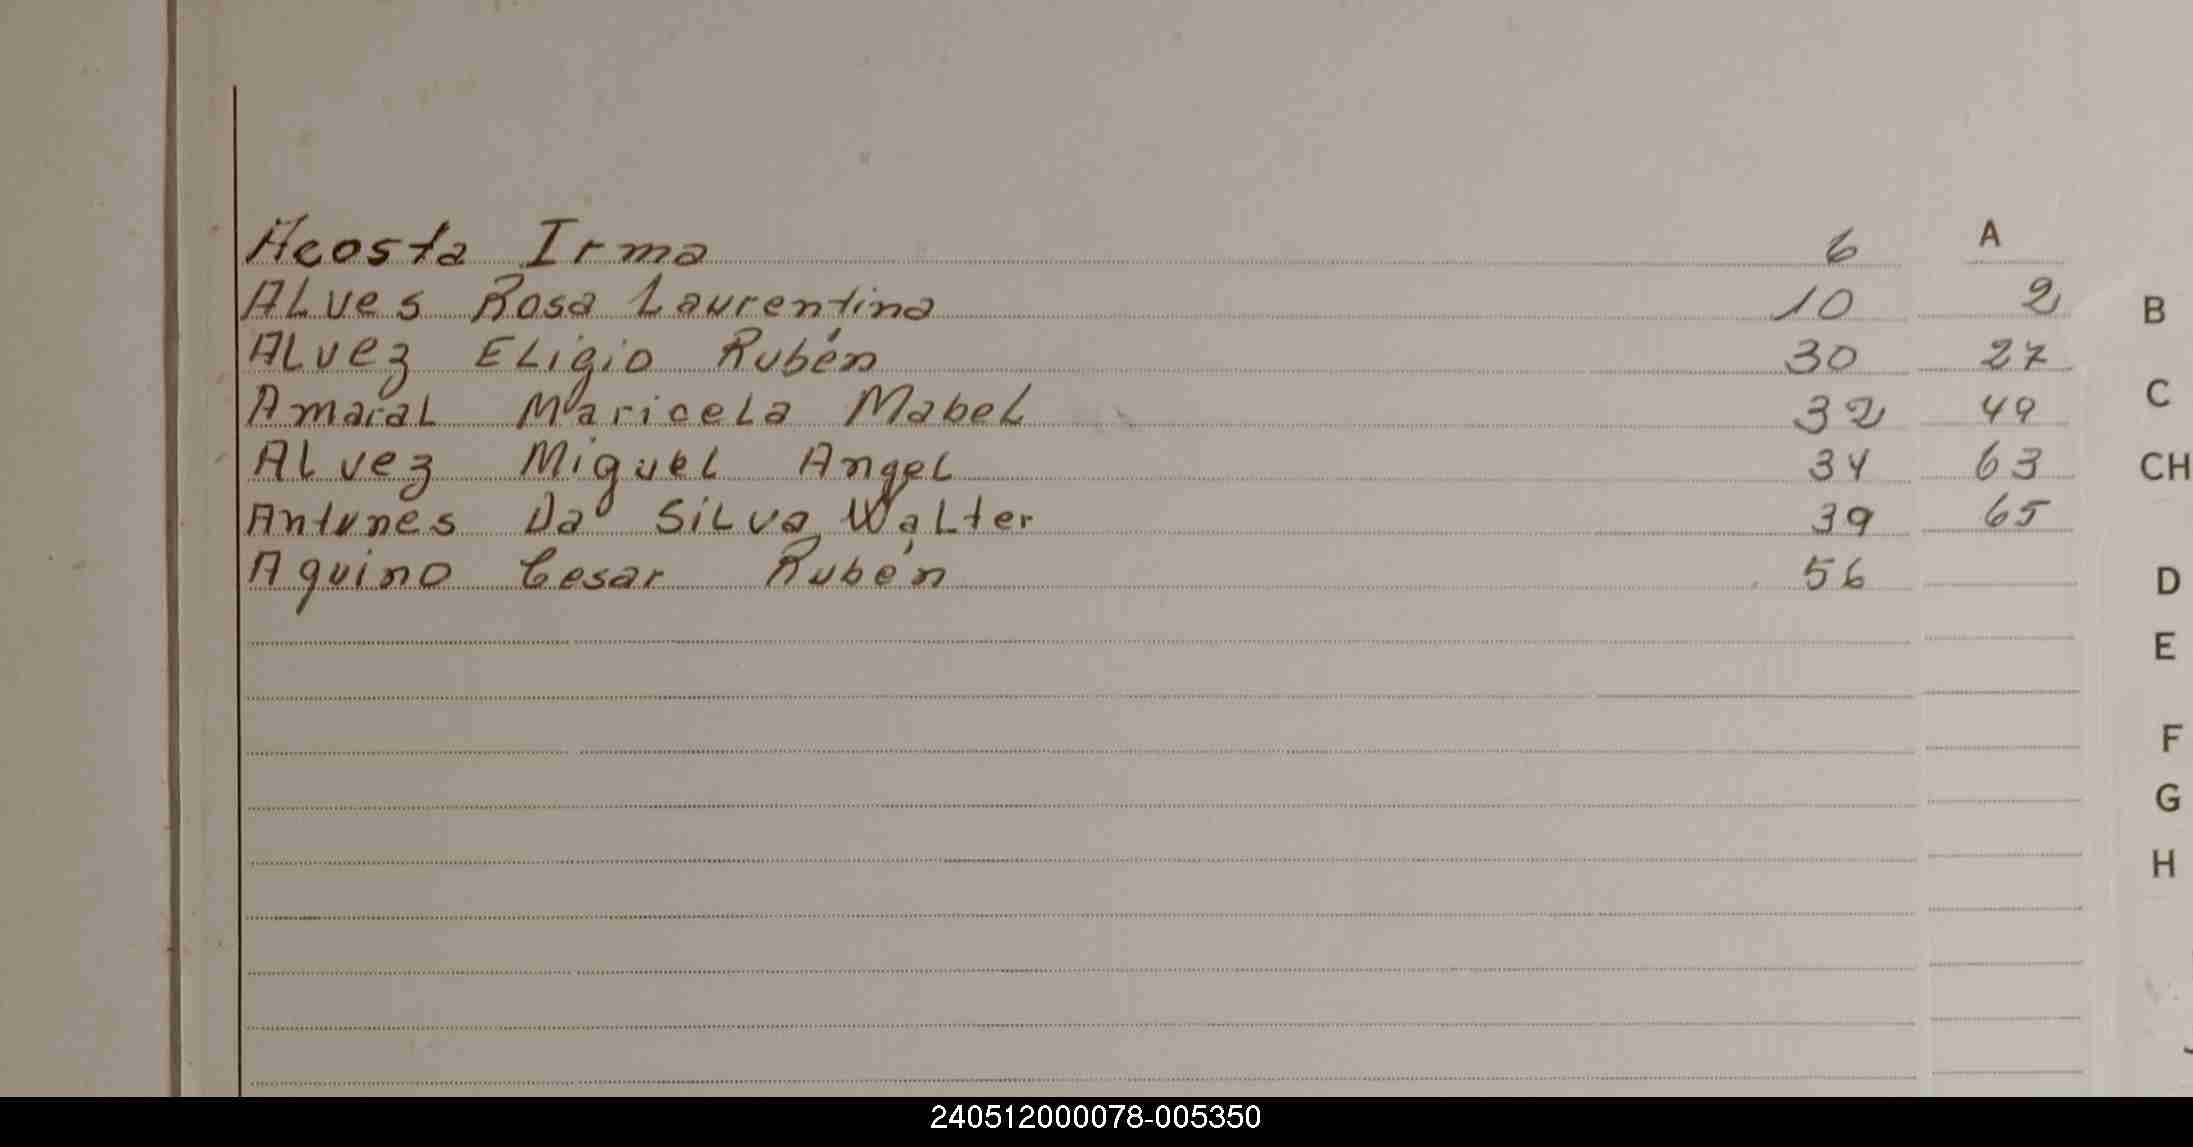 Acosta Irma 6 A
Alves Rosa Laurentina 10
Alvez Eligio Rubén 30
Amaral Maricela Mabel 32
Alvez Miguel Angel 34
Antunes Da Silva Walter 39
Aquino Cesar Rubén 56
2
27
49
63
65
B
C
CH
D
E
F
G
H
240512000078-005350